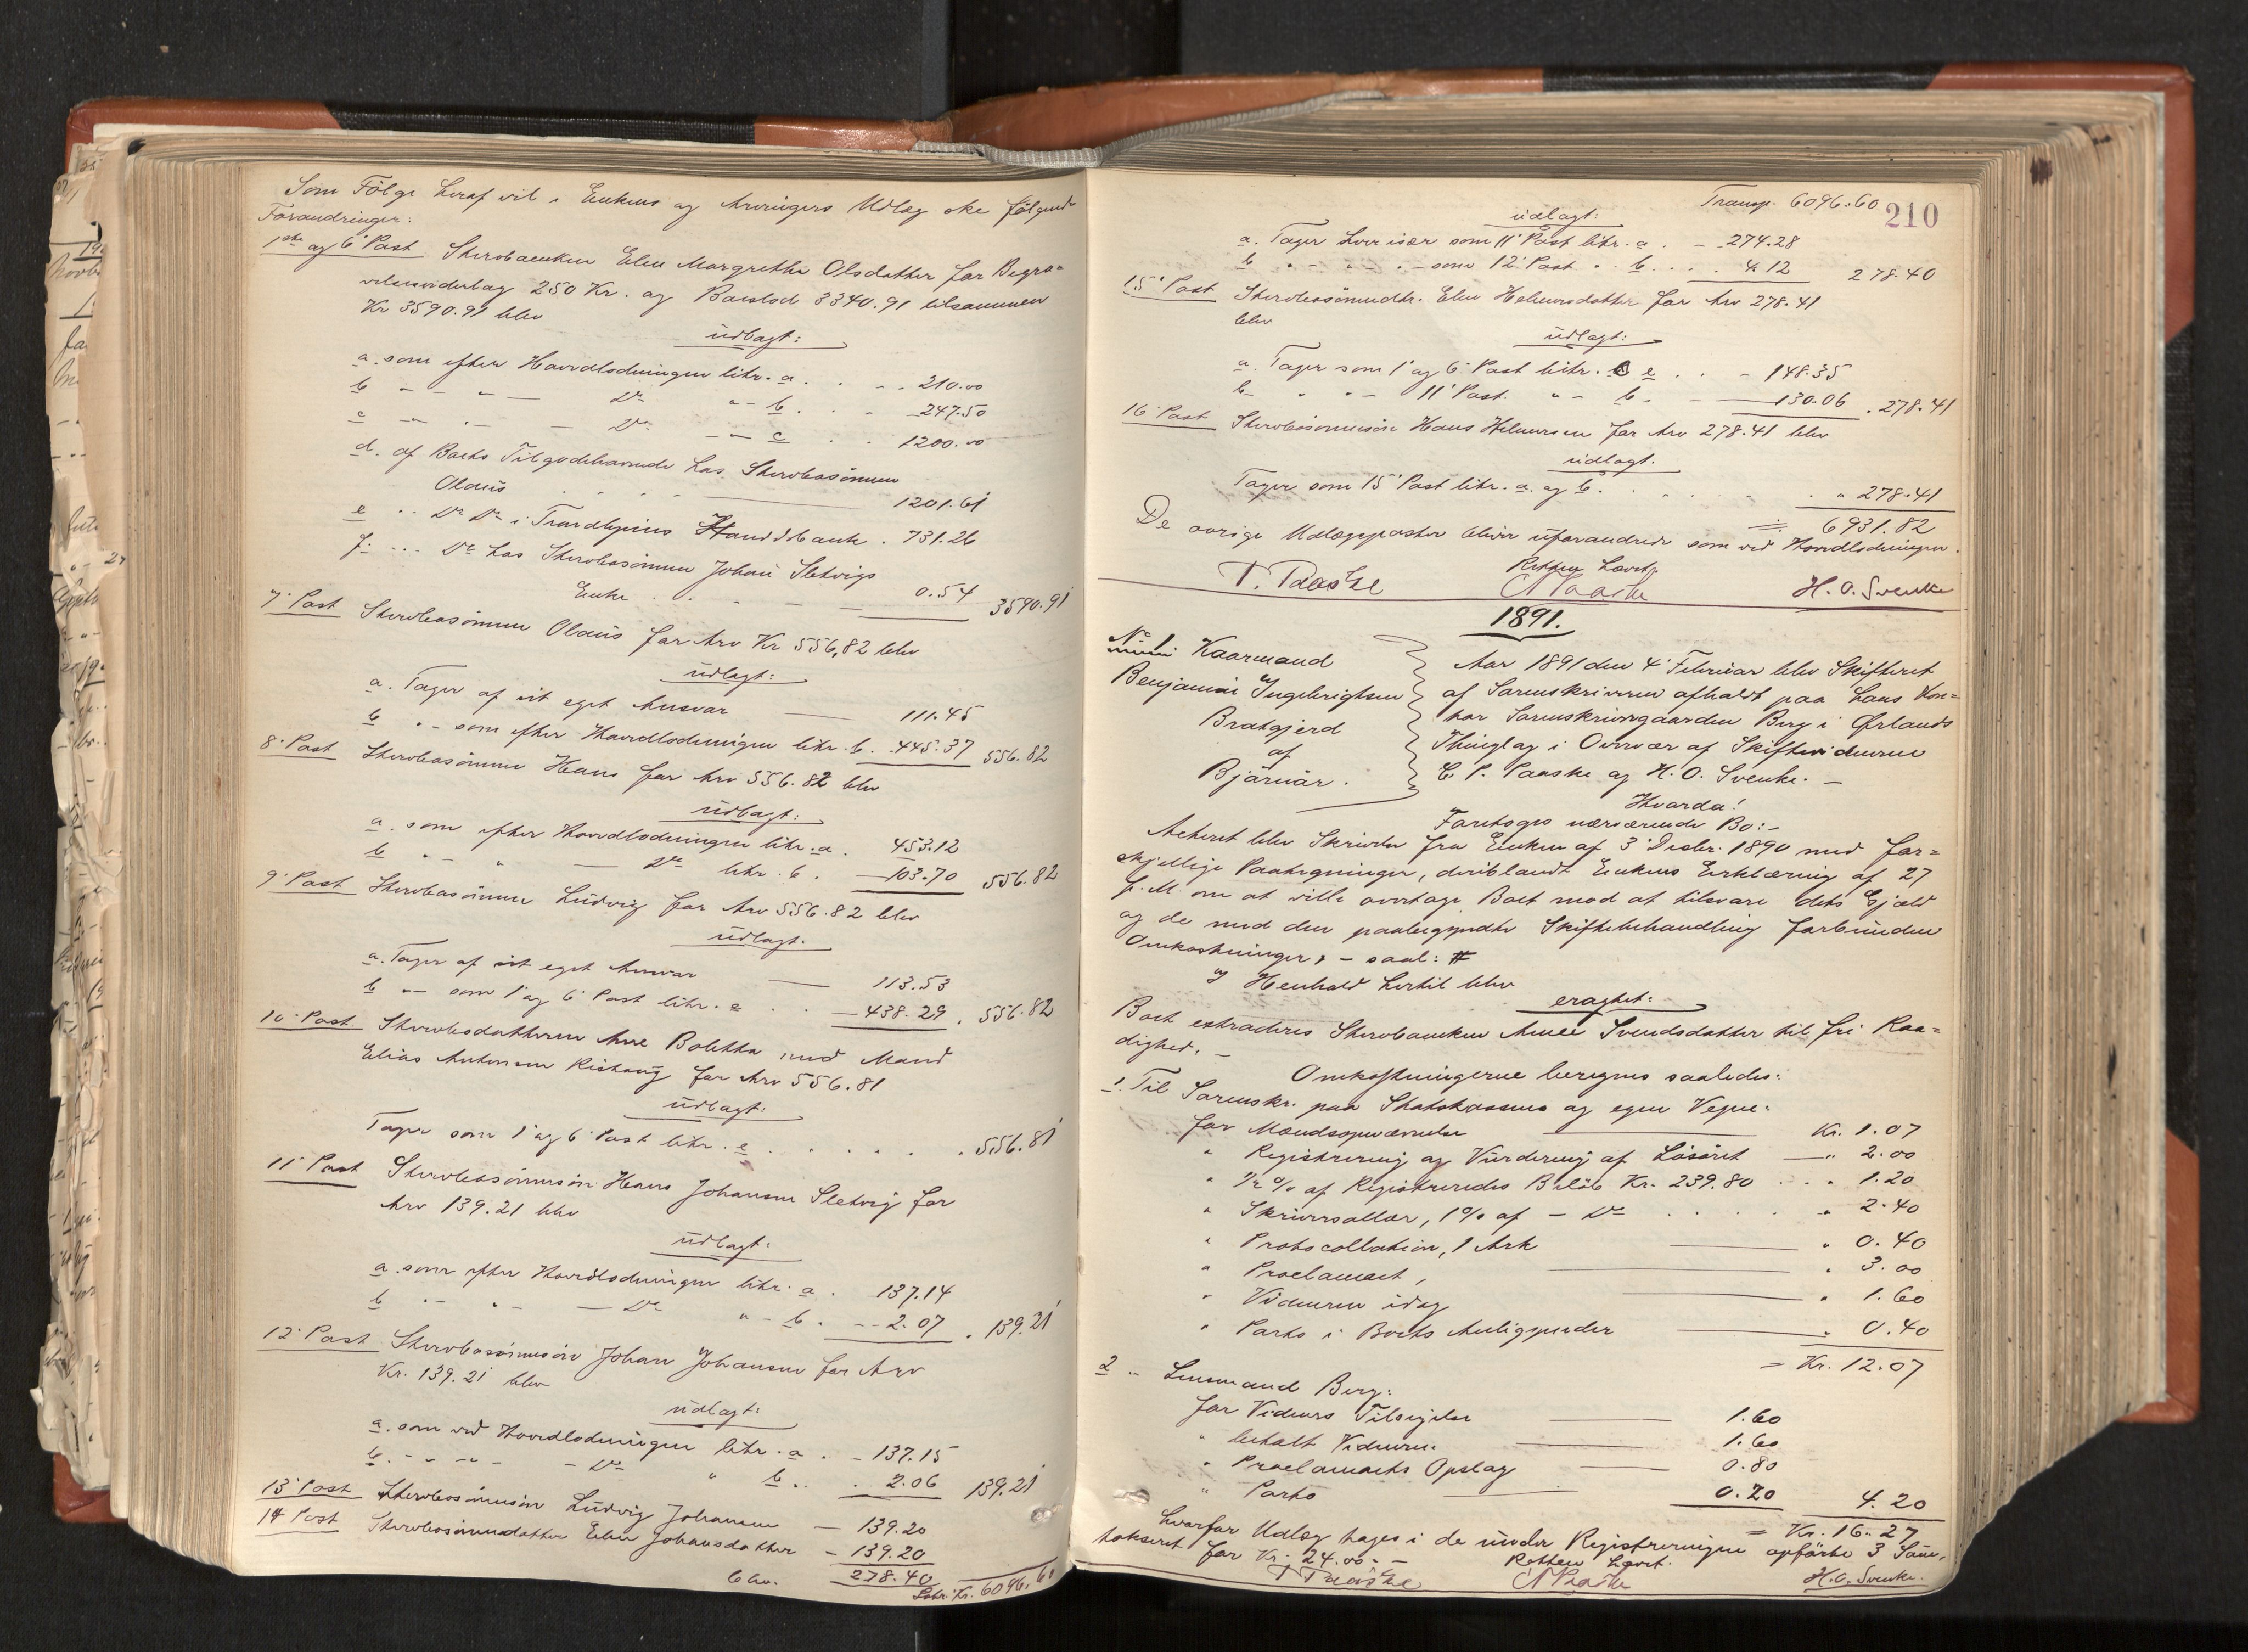 Som Følge heraf vil i Enkens og Arvingers Udlæg ske følgende
Forandringer:
1ste og 6' Post Sterboenken Elen Margrethe Olsdatter for Begra=
velsesvederlag 250 Kr. og Boeslod 3340.91 tilsammen
Kr 3590.91 blev
udlagt:
a. som efter Hovedlodningen litr. a . . - - 210.00
b - - " - — Do " - b . . - 247.50
c - - " - — Do - - c . . 1200.00
d. af Boets Tilgodehavende hos Sterbosønnen
Olaus . . . . — 1201.61
e " - Do Do i Trondhjems Handelsbank . 731.26
f. - - - Do hos Sterbosønnen Johan Sletvigs
Enke . . . - — — 0.54 3590.91
7' Post Sterbosønnen Olaus for Arv Kr 556,82 blev
udlagt:
a. Tager af sit eget Ansvar — 111.45
b " - som efter Hovedlodningen litr. b. . 445.37 556.82
8' Post Sterbosønnen Hans for Arv 556.82 blev
udlagt:
a. som efter Hovedlodningen litr. a . 453.12
b " - - " — Do litr. b . — 103.70 556.82
9' Post Sterbosønnen Ludvig for Arv 556.82 blev
udlagt.
a. Tager af sit eget Ansvar — 113.53
b " - som 1' og 6' Post litr. e . . — 438.29 . 556.82
10' Post Sterbodatteren Ane Boletta med Mand
Elias Antonsen Rishaug for Arv 556.81
udlagt:
Tager som 1' og 6' Post litr. e . . . . . . 556.81
11' Post Sterbosønnesøn Hans Johansen Sletvig for
Arv 139.21 blev
udlagt:
a. som efter Hovedlodningen litr. a . 137.14
b " - " - — Do " - b . - - 2.07 . 139.21
12' Post Sterbosønnesøn Johan Johansen for Arv
Kr. 139.21 blev
udlagt:
a. som ved Hovedlodningen litr. a . - 137.15
b. - - " - - Do " b . . . 2.06 139.21
13' Post Sterbosønnesøn Ludvig Johansen — 139.20
14 Post Sterbosønnedatter Elen Johansdatter - 139.20
blev. 278.40
Latr. Kr. 6096.60
Transp. 6096.60 210
udlagt:
a. Tager hver især som 11' Post litr. a . - 274.28
b " - " - " - som 12' Post " b . . . . 4.12 278.40
15' Post Sterbosønnedtr. Elen Helmersdatter for Arv 278.41
blev
udlagt:
a. Tager som 1' og 6' Post litr. e . . - 148.35
b - " " - 11' Post. " - b - — 130.06 . 278.41
16' Post Sterbosønnesøn Hans Helmersen for Arv 278.41 blev
udlagt.
Tager som 15' Post litr. a. og b. . . . . . " 278.41
= 6931.82
De øvrige Udlægsposter bliver uforandrede som ved Hovedlodningen.
Retten hævet.
T. Paaske H. O. Svenke
1891.
No 1.
Kaarmand
Benjamin Ingebrigtsen
Bratgjerd
af
Bjørnør.
Aar 1891 den 4' Februar blev Skifteret
af Sorenskriveren afholdt paa hans Kon=
tor Sorenskrivergaarden Berg i Ørlands
Thinglag i Overvær af Skiftevidnerne
C. P. Paaske og H. O. Svenke. —
Hvorda!
Foretoges nærværende Bo: -
Acteret blev Skrivelse fra Enken af 3' Decbr. 1890 med for=
skjellige Paategninger, deriblandt Enkens Erklæring af 27
f. M. om at ville overtage Boet mod at tilsvare dets Gjæld
og de med den paabegyndte Skiftebehandling forbundne
Omkostninger, - saal: #
I Henhold hertil blev
eragtet:
Boet extraderes Sterboenken Anne Svendsdatter til fri Raa=
dighed. -
Omkostningerne beregnes saaledes:
1. Til Sorenskr. paa Statskassens og egne Vegne:
for Mandsopnævnelse — Kr. 1.07
" Registrering og Vurdering af Løsøret — " 2.00
" 1/2 % af Registreredes Beløb Kr. 239.80 . . . 1.20
" Skriversallær, 1 % af - Do . . . . " 2.40
" Protocollation, 1 Ark — " 0.40
" Proclamaet, — " 3.00
" Vidneren idag — " 1.60
" Porto i Boets Anliggender — " 0.40
= Kr. 12.07
2 " Lensmand Berg:
for Vidners Tilsigelse — 1.60
" betalt Vidnerne — 1.60
" Proclamaets Opslag — 0.80
" Porto — 0.20 4.20
= Kr. 16.27
hvorfor Udlæg tages i de under Registreringen opførte 3 Sauer,
takseret for Kr. 24.00. -
Retten hævet.
T Paaske H. O. Svenke.